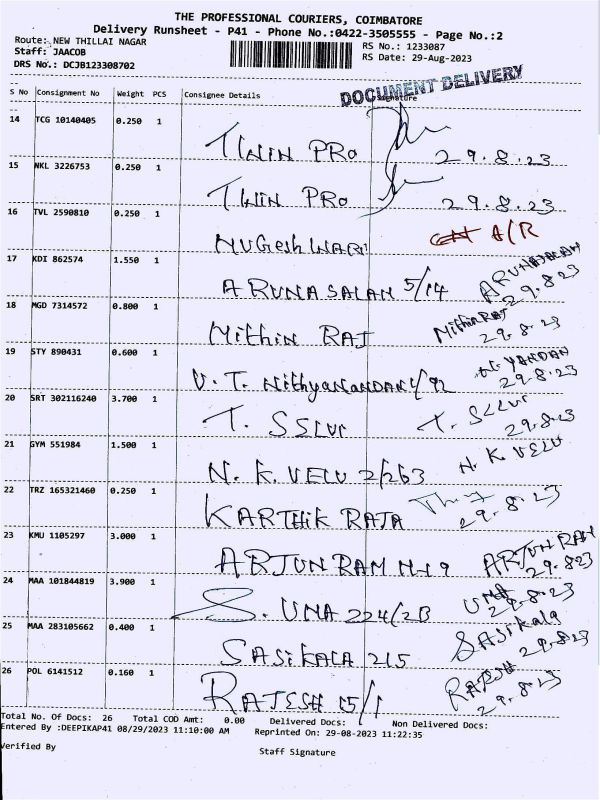 THE PROFESSIONAL COURIERS, COIMBATORE
Delivery Runsheet - P41 - Phone No.:0422-3505555 - Page No.:2
Route: NEW THILLAI NAGAR
RS No.: 1233087
Staff: JAACOB
RS Date: 29-Aug-2023
DRS No.: DCJB123308702
DOCUMENT DELIVERY
S No Consignment No Weight PCS Consignee Details Signature
14 TCG 10140405 0.250 1
TWIN PRO 29.8.23
15 NKL 3226753 0.250 1
TWIN PRO 29.8.23
16 TVL 2590810 0.250 1
MUGESHWARI A/R
17 KDI 862574 1.550 1
ARUNASALAM 5/14 ARUNASALAM
29.8.23
18 MGD 7314572 0.800 1
Mithin RAJ Mithin RAJ
29.8.23
19 STY 890431 0.600 1
V. T. Nithyanandan
29.8.23
20 SRT 302116240 3.700 1
T. SSLur T. SLLur
29.8.23
21 GYM 551984 1.500 1
N. K. VELU 2/263 N. K. VELU
22 TRZ 165321460 0.250 1
KARTHIK RAJA 29.8.23
23 KMU 1105297 3.000 1
ARJUN RAM N-19 ARJUN RAM
29.8.23
24 MAA 101844819 3.900 1
S. UMA 224/2B UMA
29.8.23
25 MAA 283105662 0.400 1
SASIKALA 215 SASikala
29.8.23
26 POL 6141512 0.160 1
RAJESH 15/1 RAJESH
29.8.23
Total No. Of Docs: 26 Total COD Amt: 0.00 Delivered Docs: Non Delivered Docs:
Entered By :DEEPIKAP41 08/29/2023 11:10:00 AM Reprinted On: 29-08-2023 11:22:35
Verified By
Staff Signature